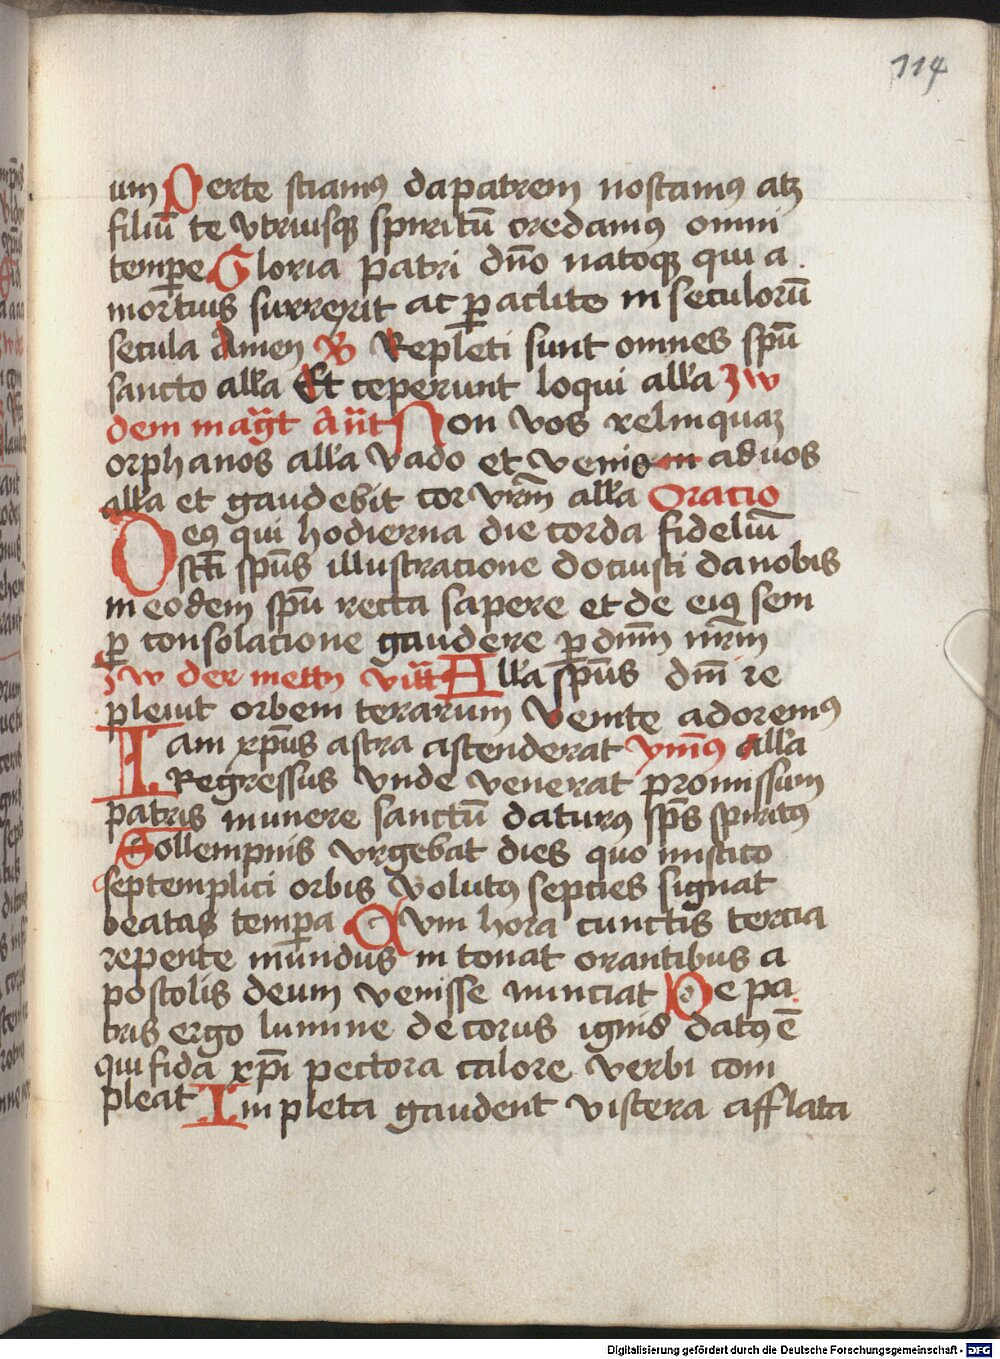 114
um Perte sciamus da patrem noscamus atz
filiū te vtriusqz spiritū credamus omni
tempe Gloria patri dn̄o natoqz qui a
mortuis surrexit ac paclito in seculorū
secula Amen B Repleti sunt omnes spū
sancto alla Et ceperunt loqui alla zw
dem mag̃t Ant Non vos relinquaz
orphanos alla vado et venio ad uos
alla et gaudebit cor vrm̄ alla Oracio
Deus qui hodierna die corda fideliū
sctī spūs illustracione docuisti da nobis
in eodem spū recta sapere et de eius sem
p consolacione gaudere p dnm̄ nrm̄
zw der metn vitt Alla spūs dnī re
pleuit orbem terarum Venite adoremus
Iam xpūs astra ascenderat ymūs alla
Regressus vnde venerat promissum
patris munere sanctū daturus sps spiritus
Sollempnis vrgebat dies quo mistico
septemplici orbis volutus septies signat
beatas tempa Cum hora cunctis tercia
repente mundus in tonat orantibus a
postolis deum venisse nunciat De pa
tris ergo lumine decorus ignis datus ē
qui fida xpī pectora calore verbi com
pleat Impleta gaudent viscera afflata
Digitalisierung gefördert durch die Deutsche Forschungsgemeinschaft - DFG